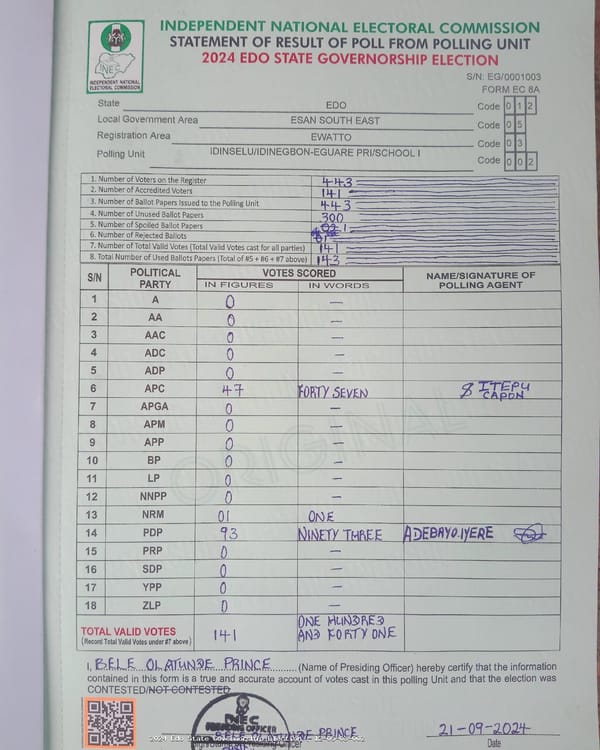 INDEPENDENT NATIONAL ELECTORAL COMMISSION
STATEMENT OF RESULT OF POLL FROM POLLING UNIT
2024 EDO STATE GOVERNORSHIP ELECTION
INEC
INDEPENDENT NATIONAL ELECTORAL COMMISSION
S/N: EG/0001003
FORM EC 8A
State EDO Code 0 1 2
Local Government Area ESAN SOUTH EAST Code 0 5
Registration Area EWATTO Code 0 3
Polling Unit IDINSELU/IDINEGBON-EGUARE PRI/SCHOOL I Code 0 0 2
1. Number of Voters on the Register 443
2. Number of Accredited Voters 141
3. Number of Ballot Papers Issued to the Polling Unit 443
4. Number of Unused Ballot Papers 300
5. Number of Spoiled Ballot Papers
6. Number of Rejected Ballots
7. Number of Total Valid Votes (Total Valid Votes cast for all parties) 141
8. Total Number of Used Ballots Papers (Total of #5 + #6 + #7 above) 143
S/N POLITICAL PARTY VOTES SCORED NAME/SIGNATURE OF POLLING AGENT
IN FIGURES IN WORDS
1 A 0 —
2 AA 0 —
3 AAC 0 —
4 ADC 0 —
5 ADP 0 —
6 APC 47 FORTY SEVEN
7 APGA 0 —
8 APM 0 —
9 APP 0 —
10 BP 0 —
11 LP 0 —
12 NNPP 0 —
13 NRM 01 ONE
14 PDP 93 NINETY THREE ADEBAYO.IYERE
15 PRP 0 —
16 SDP 0 —
17 YPP 0 —
18 ZLP 0 —
ORIGINAL
TOTAL VALID VOTES 141 ONE HUNDRED AND FORTY ONE
(Record Total Valid Votes under #7 above)
I, BELE OLATUNDE PRINCE (Name of Presiding Officer) hereby certify that the information
contained in this form is a true and accurate account of votes cast in this polling Unit and that the election was
CONTESTED/NOT CONTESTED
INEC
PRESIDING OFFICER
PRINCE
21-09-2024
Date